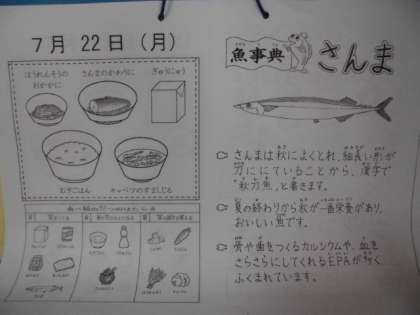 7月 22日（月）
ほうれんそうの
おかかに
さんまのかわりに
ぎゅうにゅう
むぎごはん
キャベツのすましじる
魚事典
さんま
さんまは秋によくとれ、細長い形が
刀ににていることから、漢字で
"秋刀魚"と書きます。
夏の終わりから秋が一番栄養があり、
おいしい魚です。
骨や歯をつくるカルシウムや、血を
さらさらにしてくれるEPAが多く
ふくまれています。